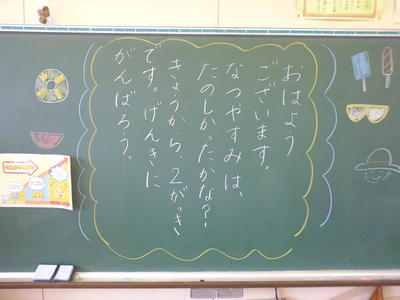 おはよう
ございます。
なつやすみは、
たのしかったかな？
きょうから、2がっき
です。げんきに
がんばろう。